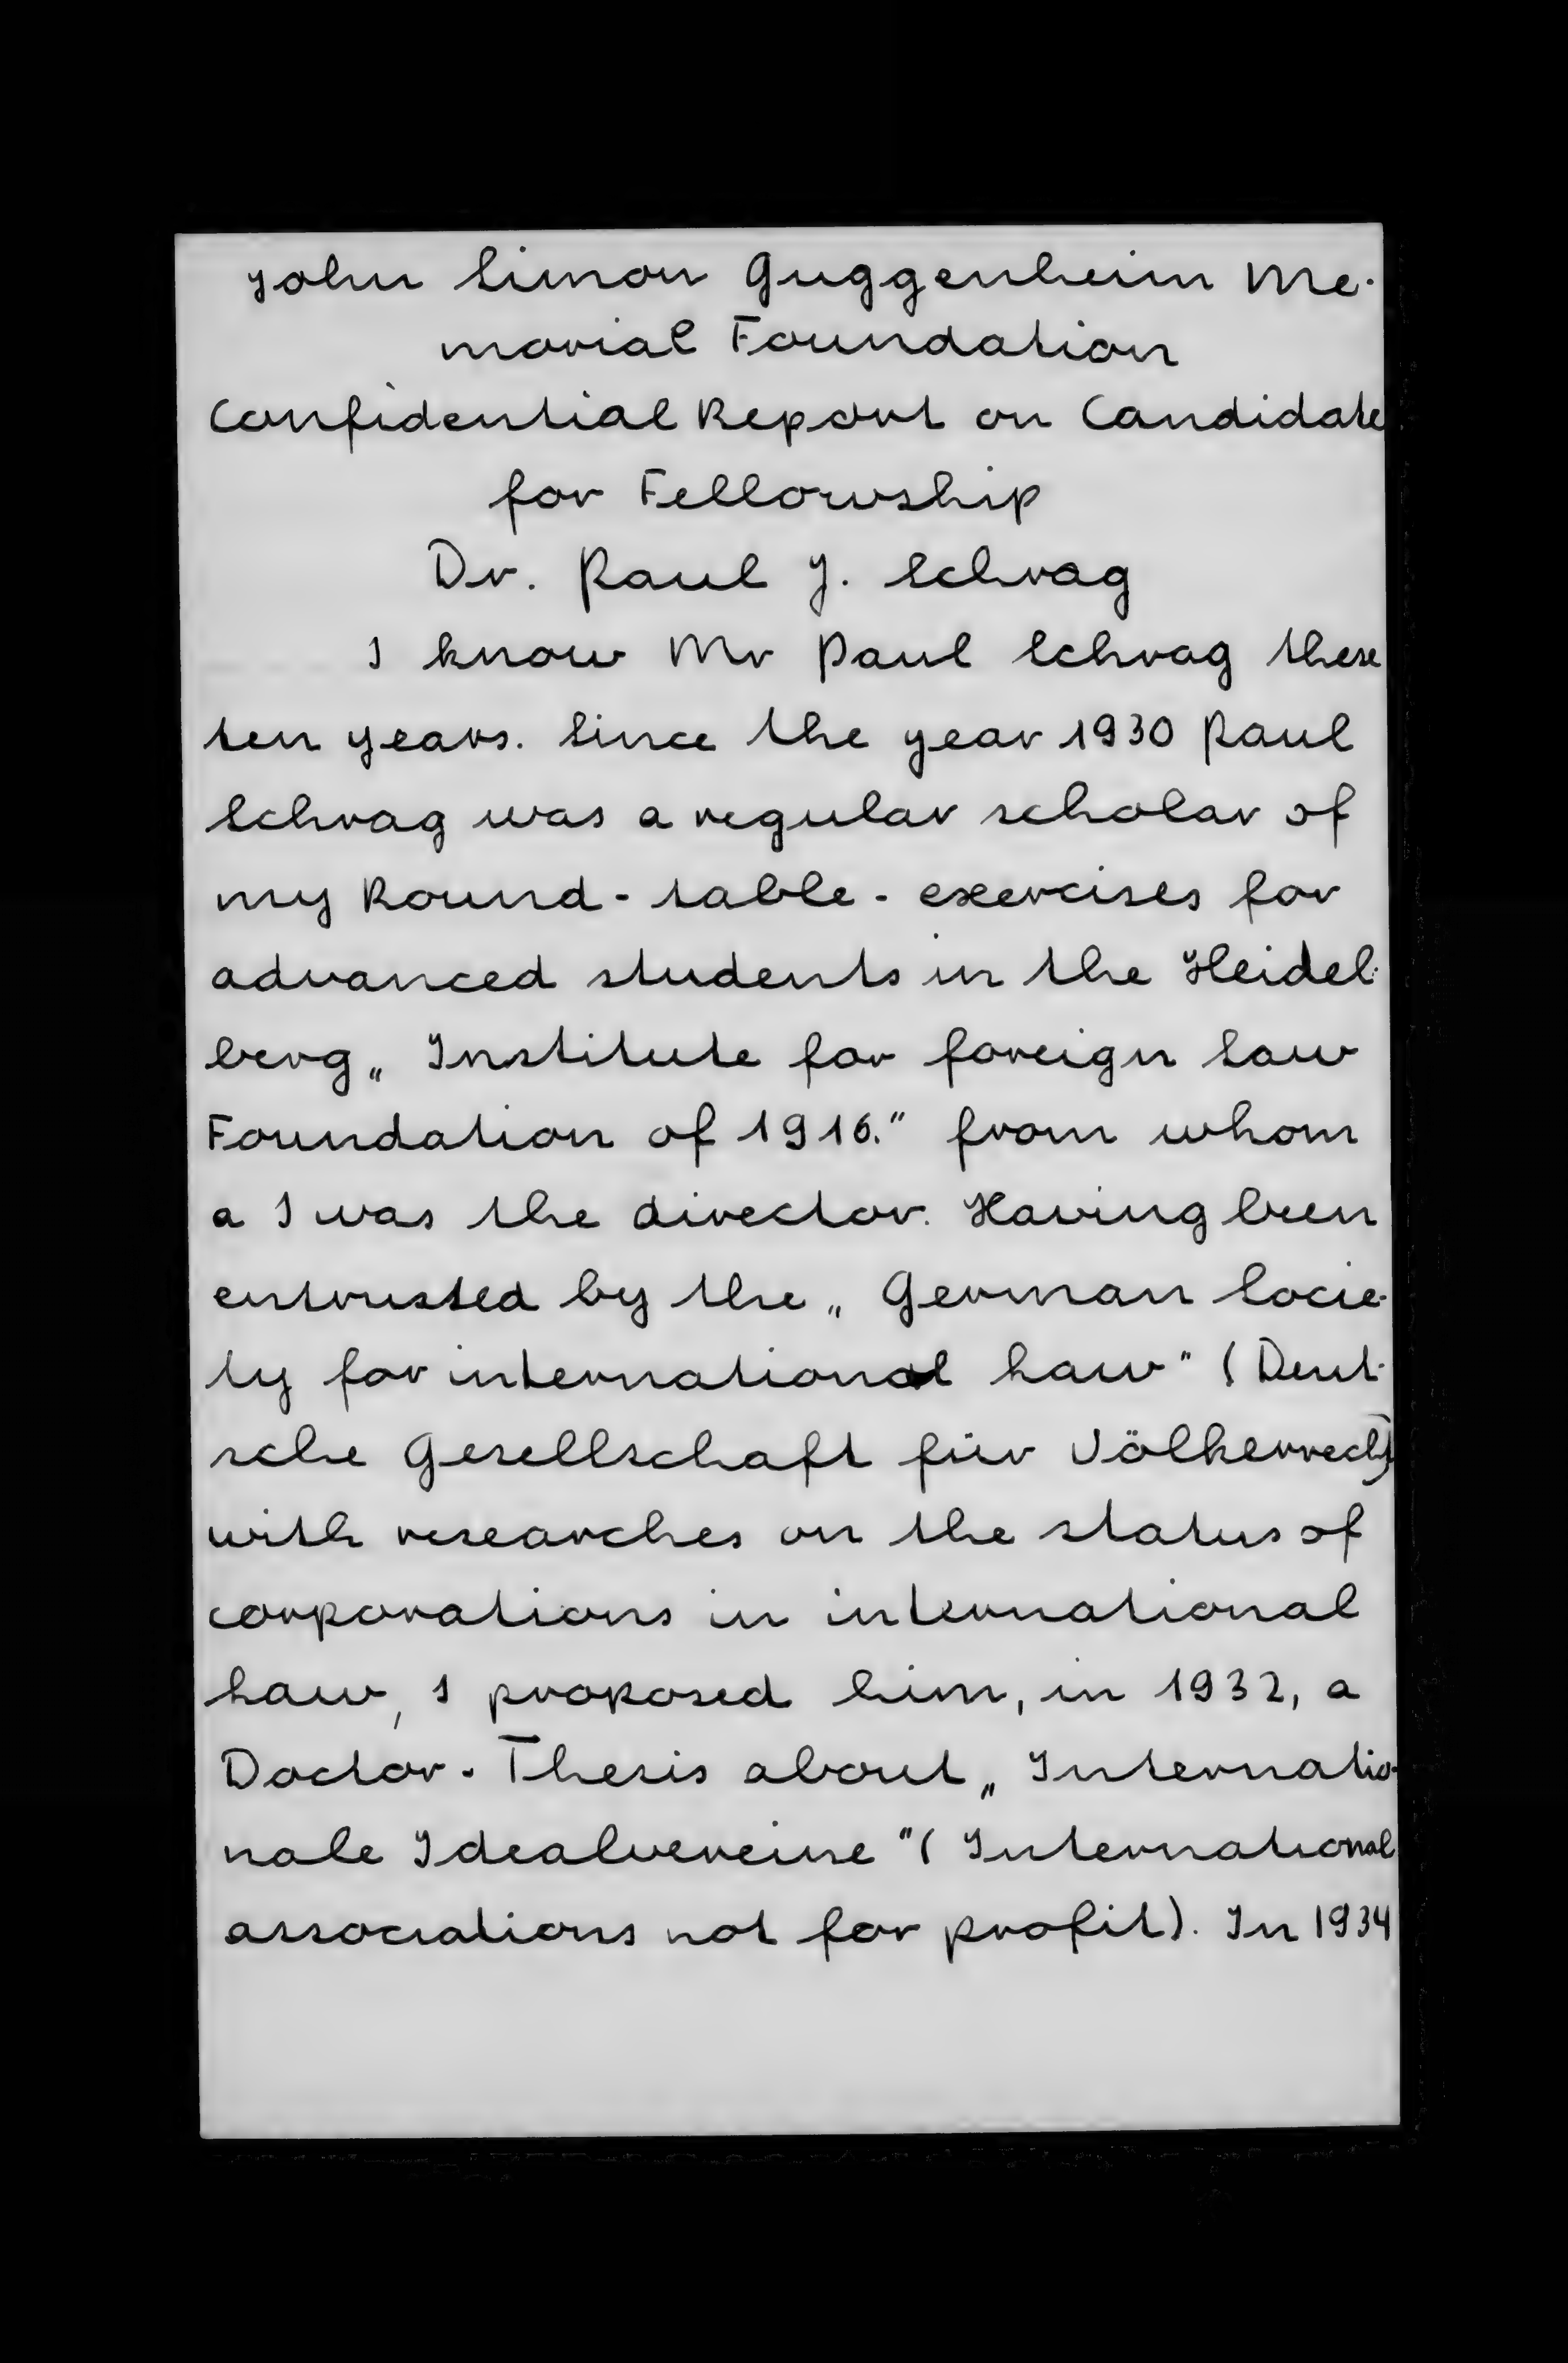 John Simon Guggenheim Me-
morial Foundation
Confidential Report on Candidate
for Fellowship
Dr. Paul J. Schrag
I know Mr Paul Schrag these
ten years. Since the year 1930 Paul
Schrag was a regular scholar of
my Round-table-exercises for
advanced students in the Heidel-
berg „Institute for foreign Law
Foundation of 1916.” from whom
a I was the director. Having been
entrusted by the „German Socie-
ty for international Law” (Deut-
sche Gesellschaft für Völkerrecht)
with researches on the status of
corporations in international
Law, I proposed him, in 1932, a
Doctor-Thesis about „Internatio-
nale Idealvereine” (International
associations not for profit). In 1934